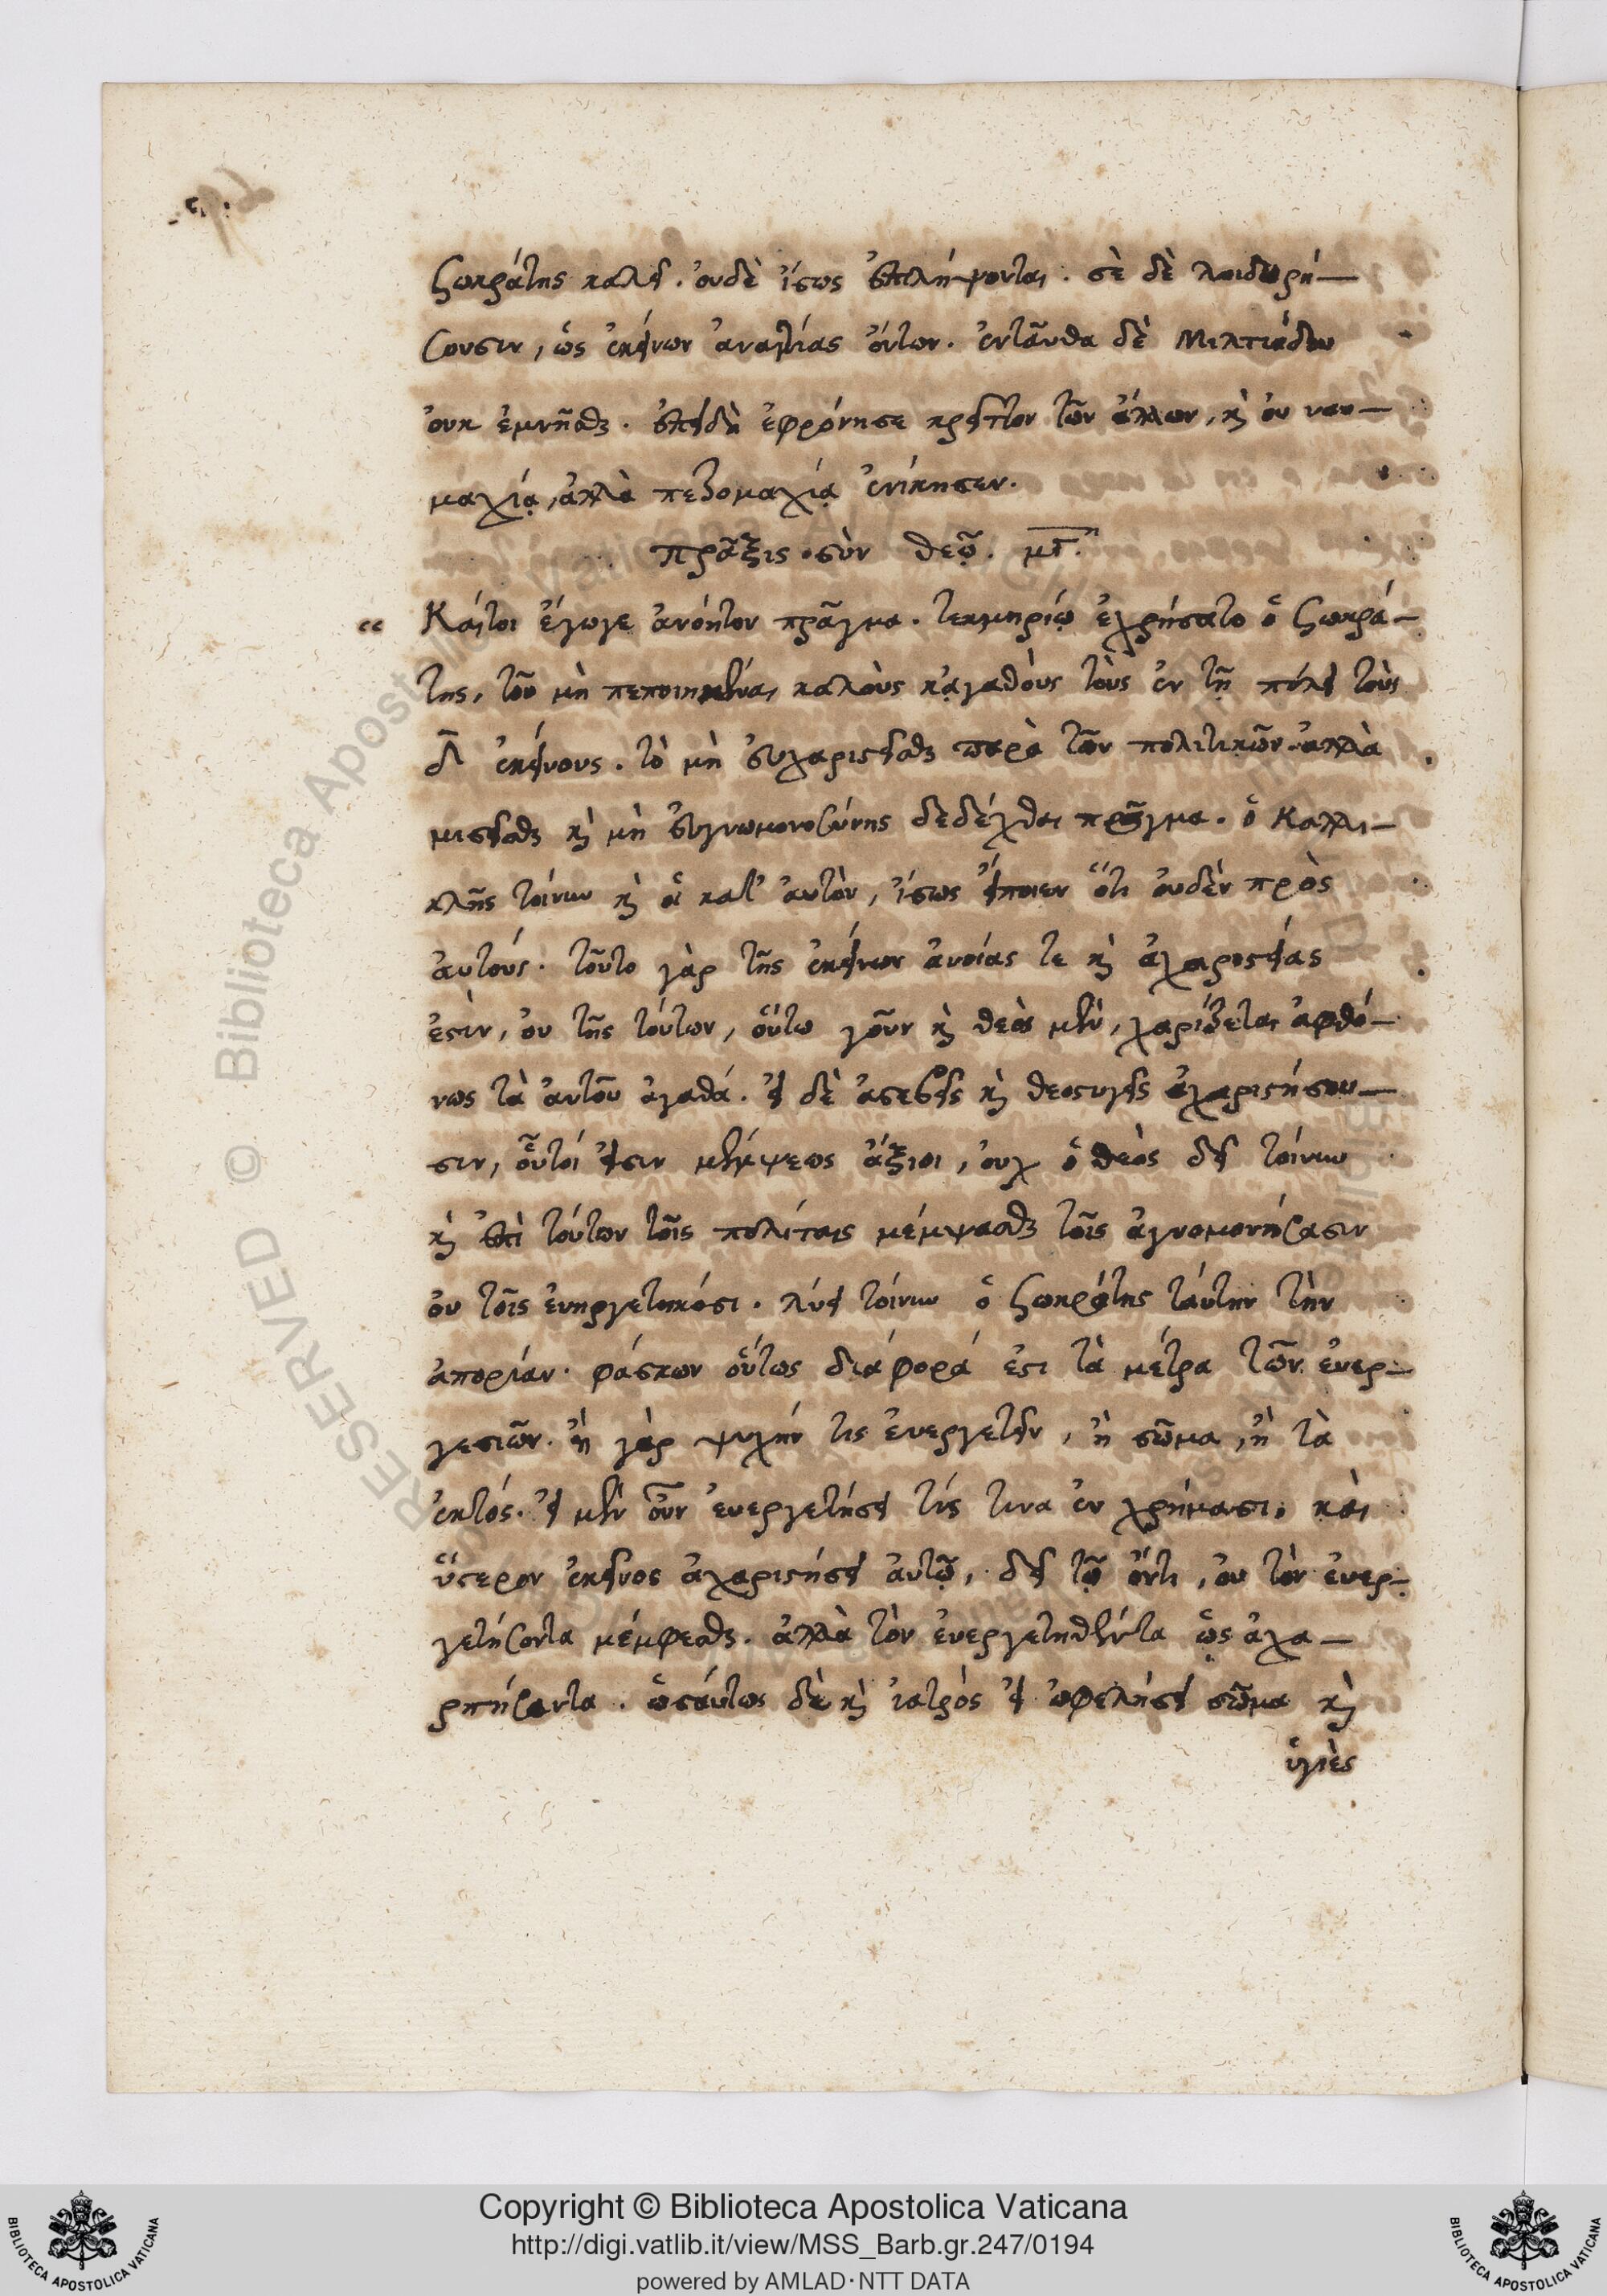 Σωκράτης καλεῖ. οὐδὲ ἴσως ἐπιλήψονται. σὲ δὲ λοιδωρή-
σουσιν, ὡς ἐκείνων ἀναιτίας ὄντων. ἐνταῦθα δὲ Μιλτιάδου
οὐκ ἐμνῆσθαι. ἐπειδὴ ἐφρόνησε κρεῖττον τῶν ἄλλων, καὶ οὐ ναυ-
μαχίᾳ, ἀλλὰ πεζομαχίᾳ ἐνίκησεν.
πρᾶξις σὺν θεῷ.
Καίτοι ἔγωγε ἀνόητον πρᾶγμα. τεκμηρίῳ ἐχρήσατο ὁ Σωκρά-
της, τοῦ μὴ πεποιηκέναι καλοὺς κἀγαθοὺς τοὺς ἐν τῇ πόλει τοὺς
δι' ἐκείνους. τὸ μὴ εὐχαριστεῖσθαι παρὰ τῶν πολιτικῶν. ἀλλὰ
μισεῖσθαι καὶ μὴ εὐγνωμονοσύνης δεδέχθαι πρᾶγμα. ὁ Καλλι-
κλῆς τοίνυν καὶ οἱ κατ' αὐτὸν, ἴσως εἴποιεν ὅτι οὐδὲν πρὸς
αὐτούς. τοῦτο γὰρ τῆς ἐκείνων ἀνοίας τε καὶ ἀχαριστείας
ἐστὶν, οὐ τῆς τούτων, οὕτω γοῦν καὶ θεὸς μὲν, χαρίζεται ἀφθό-
νως τὰ αὐτοῦ ἀγαθά. εἰ δὲ ἀσεβεῖς καὶ θεοστυγεῖς ἀχαριστήσου-
σιν, οὗτοί εἰσιν μέμψεως ἄξιοι, οὐχ ὁ θεὸς δεῖ τοίνυν
καὶ ἐπὶ τούτων τοῖς πολίταις μέμψασθαι τοῖς ἀγνομονήσασιν
οὐ τοῖς εὐηργετηκόσι. λύει τοίνυν ὁ Σωκράτης ταύτην τὴν
ἀπορίαν. φάσκων οὕτως διάφορά ἐστι τὰ μέτρα τῶν εὐερ-
γεσιῶν. ἢ γὰρ ψυχήν τις εὐεργετεῖν, ἢ σῶμα, ἢ τὰ
ἐκτός. εἰ μὲν οὖν εὐεργετήσει τίς τινα ἐν χρήμασι, καὶ
ὕστερον ἐκεῖνος ἀχαριστήσει αὐτῷ, δεῖ τῷ ὄντι, οὐ τὸν εὐερ-
γετήσοντα μέμφεσθαι. ἀλλὰ τὸν εὐεργετηθέντα ὡς ἀχα-
ρστήσαντα. ὡσαύτως δὲ καὶ ἰατρός εἰ ὠφελήσει σῶμα καὶ
ὑγιὲς